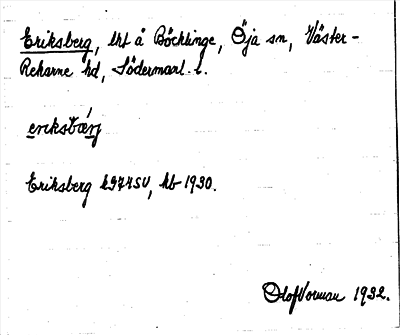 Eriksberg, lht å Böcklinge, Öja sn, Väster-
Rekarne hd, Södermanl. l.
erıksbærj
Eriksberg 1930.
Olof Vorman 1932.